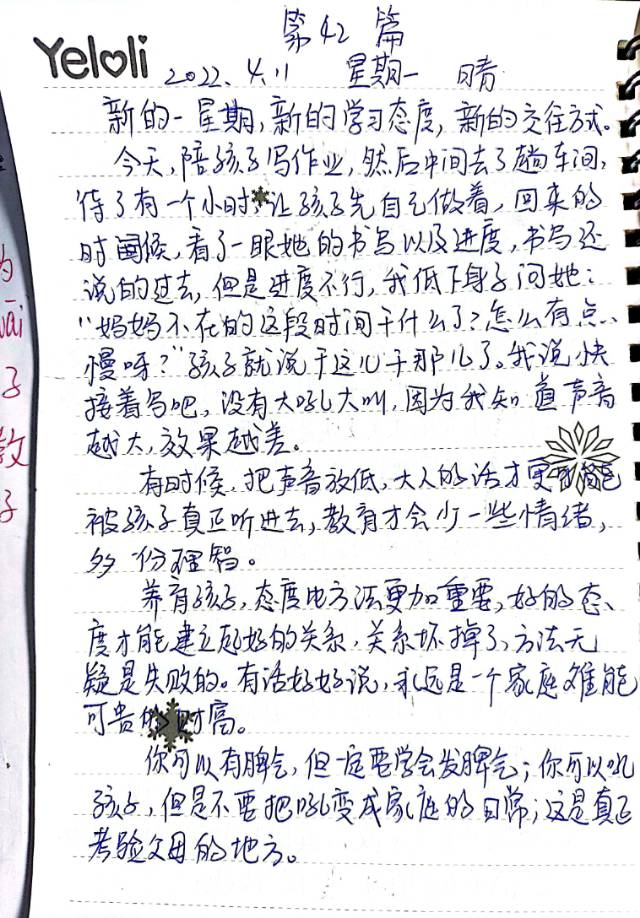 第42篇
Yeloli 2022.4.11 星期一 晴
新的一星期,新的学习态度,新的交往方式。
今天,陪孩子写作业,然后中间去了趟车间,
待了有一个小时,让孩子先自己做着,回来的
时候,看了一眼她的书写以及进度,书写还
说的过去,但是进度不行,我低下身子问她:
“妈妈不在的这段时间干什么了?怎么有点
慢呀?”孩子就说干这儿干那儿了。我说快
接着写吧,没有大吼大叫,因为我知道声音
越大,效果越差。
有时候,把声音放低,大人的话才更能
被孩子真正听进去,教育才会少一些情绪,
多一份理智。
养育孩子,态度比方法更加重要,好的态
度才能建立起好的关系,关系坏掉了,方法无
疑是失败的。有话好好说,永远是一个家庭难能
可贵的财富。
你可以有脾气,但一定要学会发脾气;你可以吼
孩子,但是不要把吼变成家庭的日常;这是真正
考验父母的地方。
子
教
子